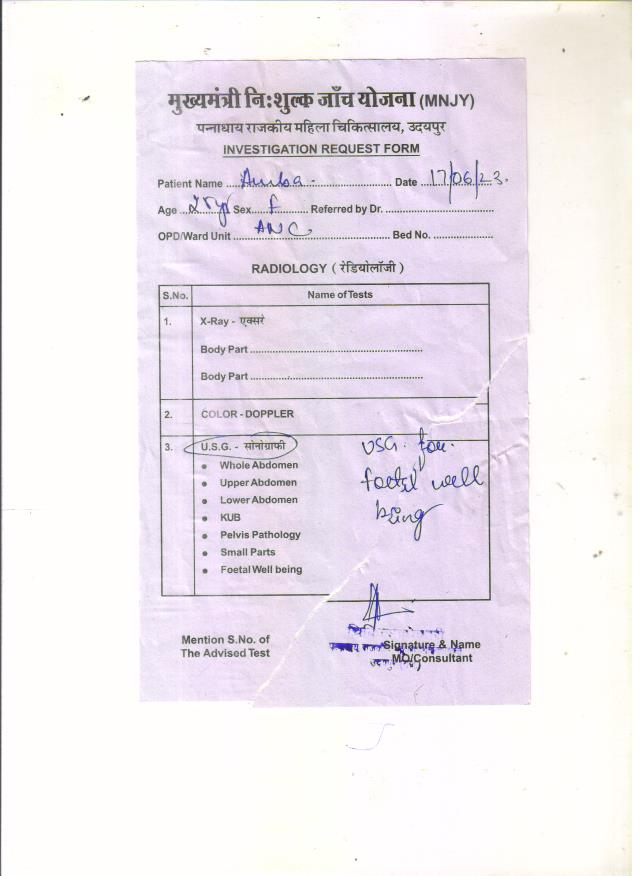 मुख्यमंत्री निःशुल्क जाँच योजना (MNJY)
पन्नाधाय राजकीय महिला चिकित्सालय, उदयपुर
INVESTIGATION REQUEST FORM
Patient Name ..... Date 17/06/23.
Age ..... Sex f Referred by Dr. .....
OPD/Ward Unit ANC Bed No. .....
RADIOLOGY ( रेडियोलॉजी )
S.No. Name of Tests
1. X-Ray - एक्सरे
Body Part .....
Body Part .....
2. COLOR - DOPPLER
3. U.S.G. - सोनोग्राफी
USG. for.
foetal well
being
• Whole Abdomen
• Upper Abdomen
• Lower Abdomen
• KUB
• Pelvis Pathology
• Small Parts
• Foetal Well being
Mention S.No. of
The Advised Test
Signature & Name
MO/Consultant